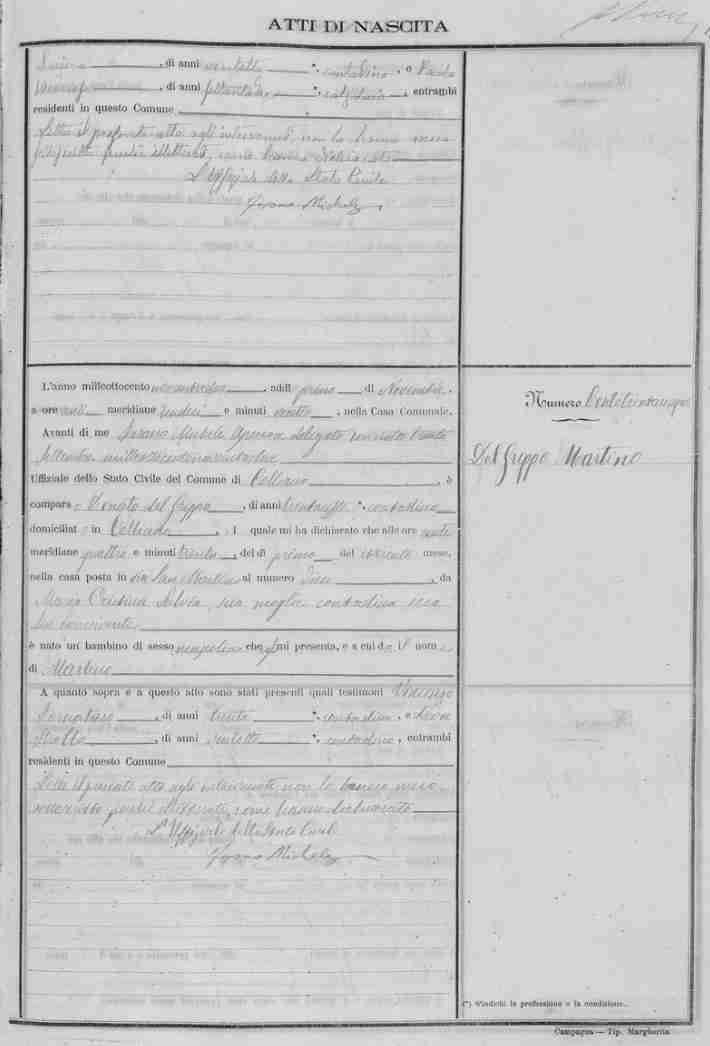 ATTI DI NASCITA
, di anni ventotto , contadino , e Paolo
, di anni settantadue , , entrambi
residenti in questo Comune
Letto il presente atto agli intervenuti, non lo hanno meco
perché illetterati, come hanno dichiarato
L'Uffiziale dello Stato Civile
Michele
L'anno milleottocento novantadue , addì primo di Novembre ,
a ore anti meridiane undici e minuti venti , nella Casa Comunale.
Avanti di me Michele delegato con nota trenta
Settembre milleottocentonovantadue
Uffiziale dello Stato Civile del Comune di Colliano , è
comparso Donato del Grippo , di anni , contadino
domiciliato in Colliano , il quale mi ha dichiarato che alle ore anti
meridiane quattro e minuti trenta , del dì primo del corrente mese,
nella casa posta in via San Martino al numero dieci , da
Maria Cristina sua moglie contadina seco
lui convivente
è nato un bambino di sesso mascolino che mi presenta, e a cui dà il nome
di Martino
A quanto sopra e a questo atto sono stati presenti quali testimoni
, di anni trenta , contadino , e Leone
, di anni ventotto , contadino , entrambi
residenti in questo Comune
Letto il presente atto agli intervenuti, non lo hanno meco
sottoscritto perché illetterati, come hanno dichiarato
L'Uffiziale dello Stato Civile
Michele
Numero
Del Grippo Martino
(*) S'indichi la professione o la condizione.
Campagna — Tip. Margherita